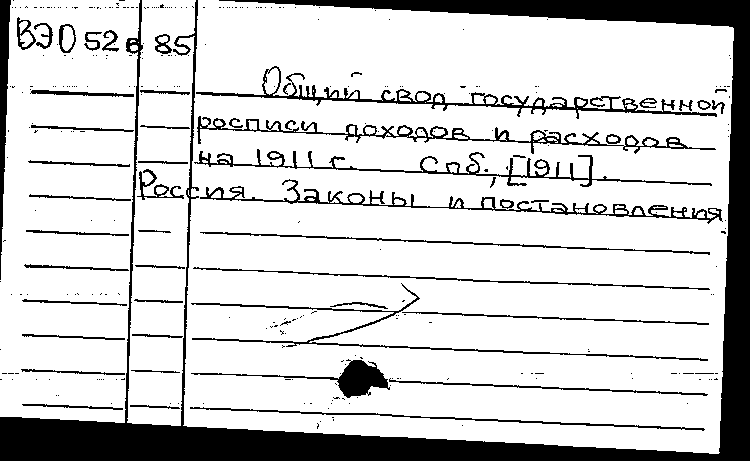 ВЭО 52 в 85
Общий свод государственной
росписи доходов и расходов
на 1911 г. Спб., [1911].
Россия. Законы и постановления